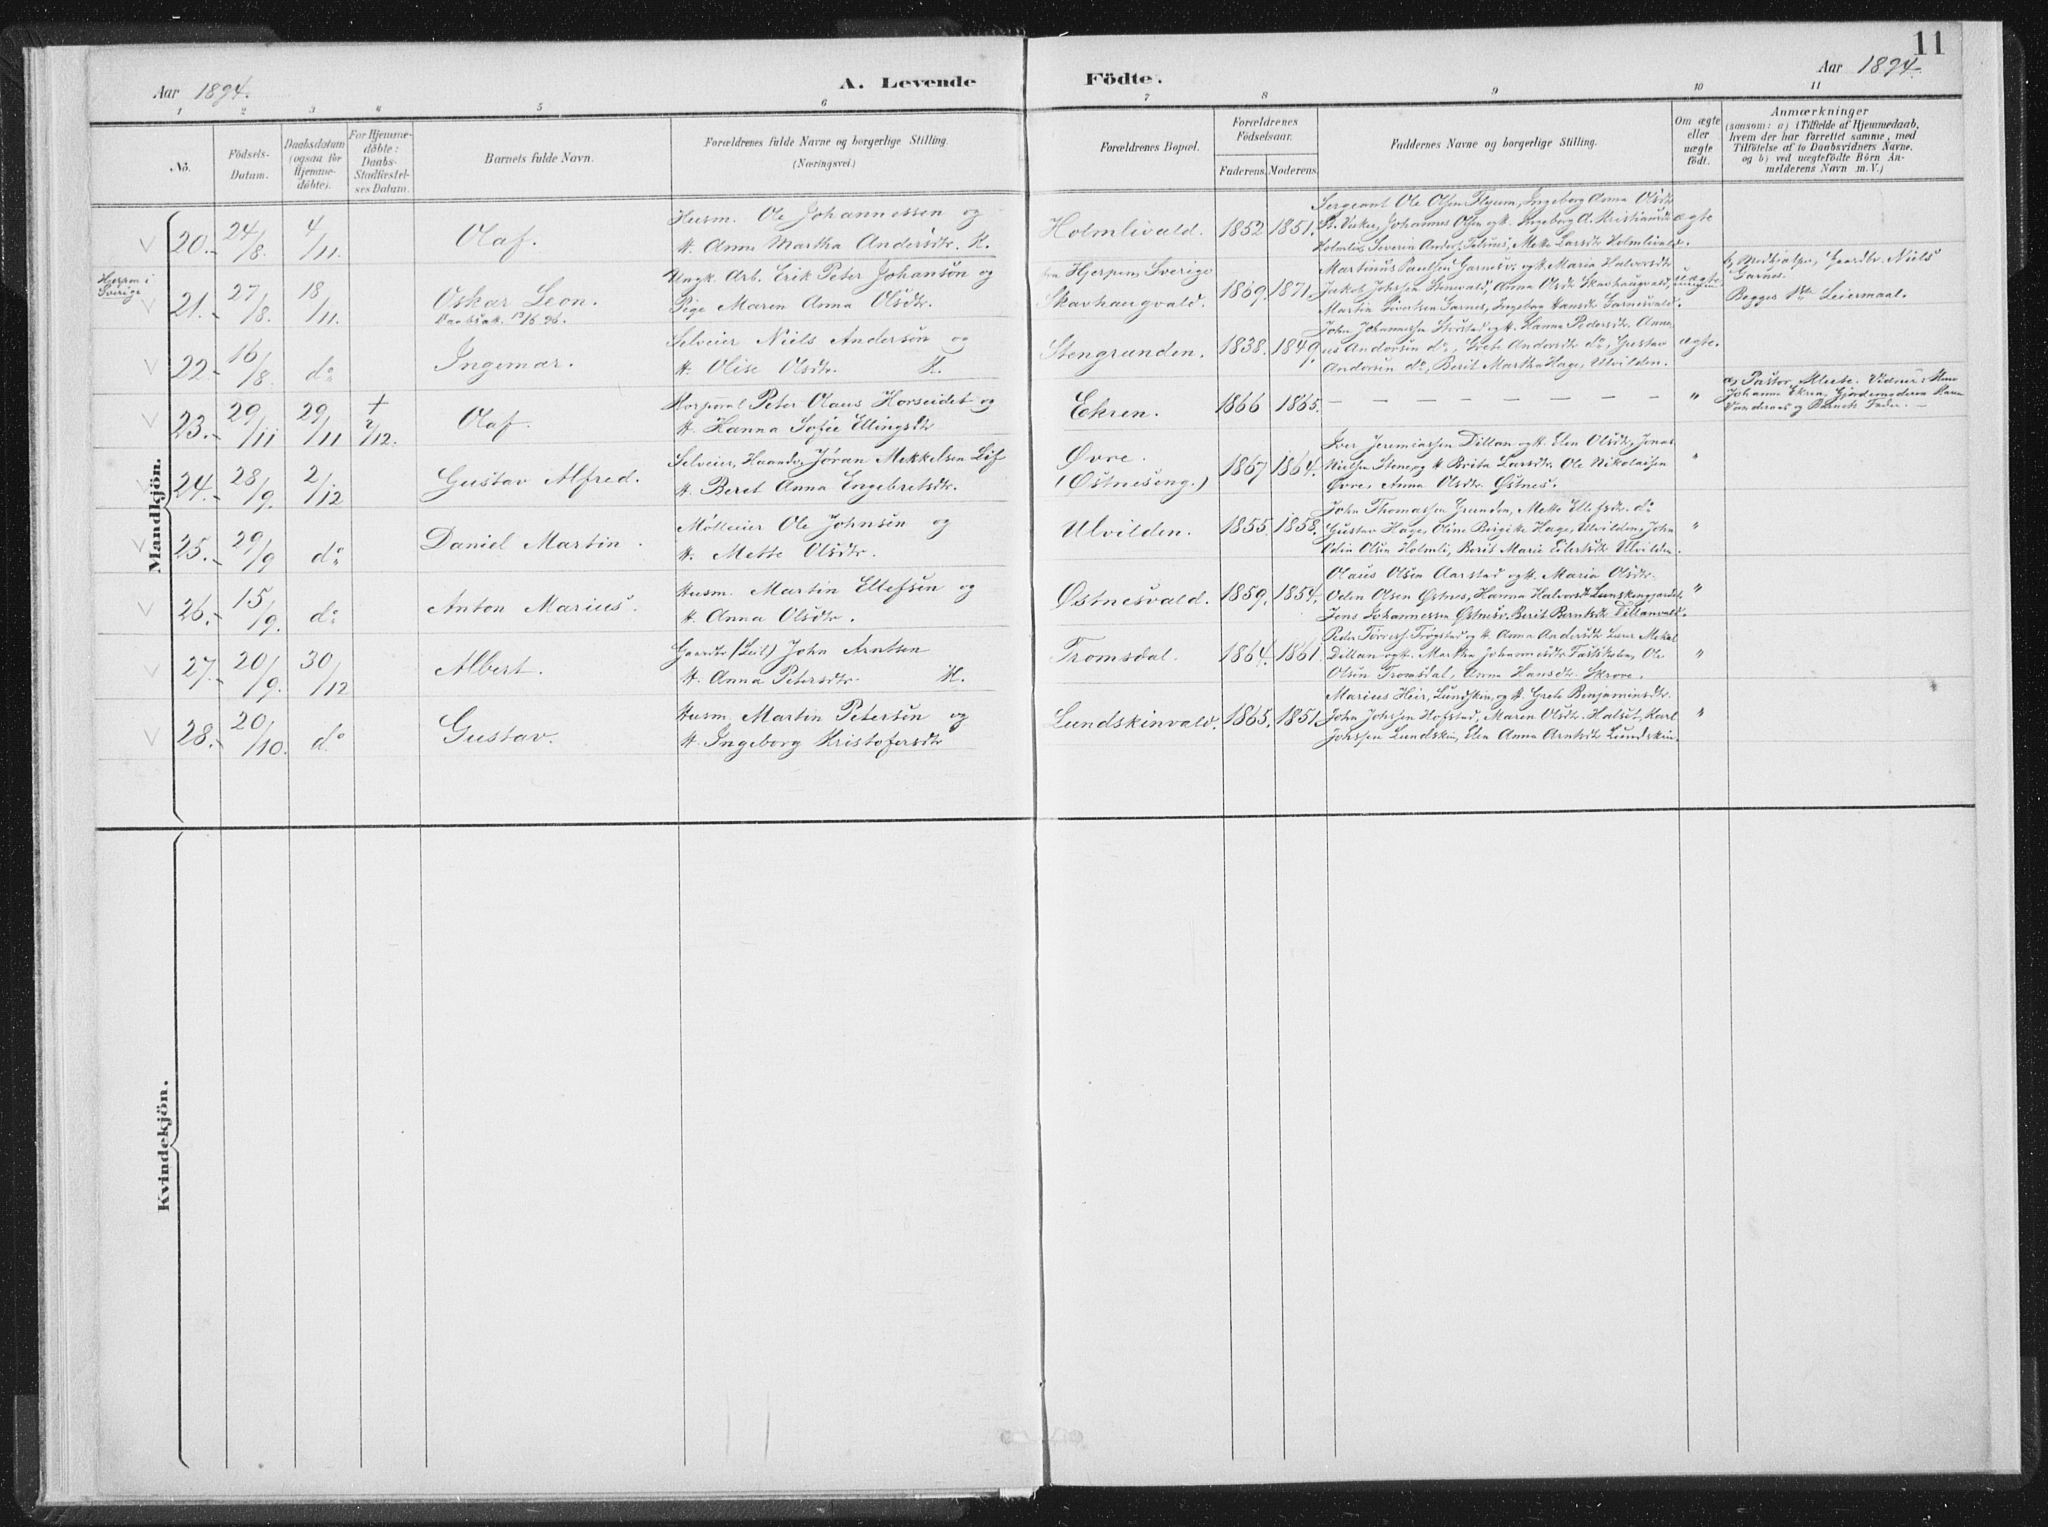 11
Aar 1894.
A. Levende
Födte.
Aar 1894.
1 2 3 4 5 6 7 8 9 10 11
No.
Födsels-
Datum.
Daabsdatum
(ogsaa for
Hjemme-
døbte).
For Hjemme-
döbte:
Daabs-
Stadfæstel-
ses Datum.
Barnets fulde Navn.
Forældrenes fulde Navne og borgerlige Stilling.
(Næringsvei.)
Forældrenes Bopæl.
Forældrenes
Födselsaar.
Faderens. Moderens.
Faddernes Navne og borgerlige Stilling.
Om ægte
eller
uægte
födt.
Anmærkninger
(saasom: a) i Tilfælde af Hjemmedaab,
hvem der har forrettet samme, med
Tilföielse af to Daabsvidners Navne.
og b) ved uægtefödte Börn An-
melderens Navn m. V.)
Mandkjön.
20. 24/8. 4/11. Olaf.
Husm. Ole Johannessen og
H. Anna Martha Andersdtr. K.
Holmlivald. 1852 1851.
Sergeant Ole Olsen Flyum, Ingeborg Anna Olsdtr
Johannes Olsen og H. Ingeborg A. Kristiansdtr
Holmli, Mette Larsdtr Holmlivald.
ægte
Hjerpen i
Sverige
21. 27/8. 18/11. Oskar Leon.
Daabsat. 13/6 96.
Ungk. Arb. Erik Peter Johansön og
Pige Maren Anna Olsdtr.
Hjerpen, Sverige
Skavhaugvald. 1869. 1871.
Martinus Paulsen Garnesv. og H. Maria Halvorsdtr
Jakob Johnsen Stenvald, Anna Olsdtr Skavhaugvald,
Martin Sivertsen Garnes, Ingeborg Hansdtr Garnesvald.
uægte
b, Gaardbr. Niels
Garnes.
Begges 1ste Leiermaal.
22. 16/8. do Ingemar.
Selveier Niels Andersön og
H. Olise Olsdtr. K.
Stengrunden. 1838. 1849.
John Johannessen Storstad og H. Hanna Pedersdtr. Anne-
us Andersen do, Grete Andersdtr do, Gustav
Andersen do, Berit Martha Hage, Ulvilden.
ægte.
23. 29/11 29/11 + 2/12. Olaf.
Korporal Peter Olaus Horseidet og
H. Hanna Sofie Ellingsdtr
Eckren. 1866 1865.
— — — — — — — —
"
a, Pastor Kleete. Vidner:
Johanna Ekren, Gjordemoderen
og Barnets Fader. —
24. 28/9. 2/12 Gustav Alfred.
Selveier, Haandv. Jøran Mekkelsen Lif
H. Beret Anna Engebretsdtr.
Øvre.
(Østneseng.) 1867 1864.
Iver Jeremiassen Dillan og H. Elen Olsdtr, Jonas
Nielsen Stene, og H. Brita Larsdtr. Ole Nikolaisen
Øvre, Anna Olsdtr. Østnes.
"
25. 29/9 do Daniel Martin.
Mølleier Ole Johnsen og
H. Mette Olsdtr.
Ulvilden. 1855. 1858.
John Thomassen Grunden, Mette Ellefsdtr. do
Gustav Hage, Oline Birgitte Hage, Ulvilden, John
Odin Olsen Holmli, Berit Marie Eilertsdtr Ulvilden.
"
26. 15/9. do Anton Marius.
Husm. Martin Ellefsön og
H. Anna Olsdtr.
Østnesvald. 1859. 1854.
Olaus Olsen Aarstad og H. Maria Olsdtr.
Oden Olsen Østnes, Hanna Halvorsdtr Lunskingjerdet,
Jens Johannessen Østnesv. Berit Berntsdtr Dillanvald.
"
27. 20/9. 30/12 Albert.
Gaardbr (Leil) John Arntsen
H. Anna Petersdtr. H.
Tromsdal. 1864. 1861.
Peder Törress. Trøgstad og H. Anna Andersdtr Lars Mekal
Dillan og H. Martha Johannesdtr, Ole
Olsen Tromsdal, Anna Hansdtr. Skrove.
"
28. 20/10. do Gustav.
Husm. Martin Petersön og
H. Ingeborg Kristofersdtr
Lundskinvald. 1865. 1851.
Marius Heir, Lundskin, og H. Grete Benjaminsdtr.
John Johnsen Hofstad, Maren Olsdtr. Halset, Karl
Johnsen Lundskin, Elen Anna Arntsdtr Lundskin.
"
Kvindekjön.